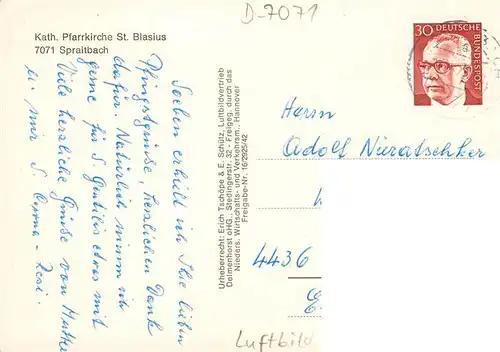 D-7071
Kath. Pfarrkirche St. Blasius
7071 Spraitbach
30 DEUTSCHE
BUNDESPOST
Soeben erhielt ich Ihre lieben
Pfingstgrüsse, herzlichen Dank
dafür. Natürlich nimm ich
gerne für S. Gentilis etwas mit
Viele herzliche Grüße von Mutter
u. mir S.
Resi.
Urheberrecht: Erich Tschöpe & E. Schütz, Luftbildvertrieb
Delmenhorst oHG., Stedingerstr. 32 - Freigeg. durch das
Nieders. Wirtschafts- und Verkehrsm., Hannover
Freigabe-Nr. 16/2925/42
Herrn
Adolf Nieratschker
4436
Luftbild